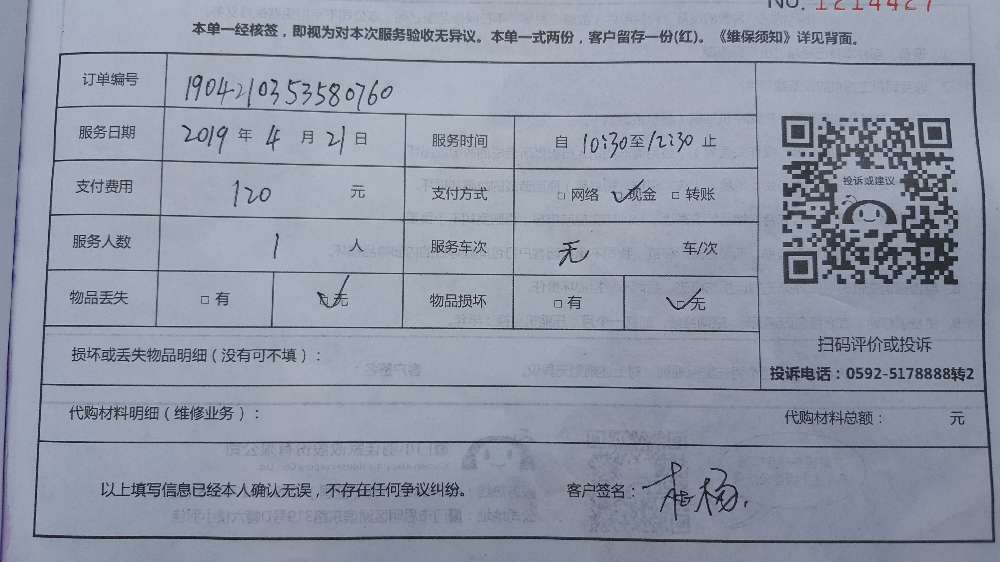 NO. 1214427
本单一经核签，即视为对本次服务验收无异议。本单一式两份，客户留存一份(红)。《维保须知》详见背面。
订单编号 1904210353580760
服务日期 2019 年 4 月 21 日 服务时间 自 10:30 至 12:30 止
支付费用 120 元 支付方式 □ 网络 □ 现金 □ 转账
投诉或建议
服务人数 1 人 服务车次 无 车/次
物品丢失 □ 有 □ 无 物品损坏 □ 有 □ 无
损坏或丢失物品明细（没有可不填）：
扫码评价或投诉
投诉电话：0592-5178888转2
代购材料明细（维修业务）： 代购材料总额： 元
以上填写信息已经本人确认无误，不存在任何争议纠纷。 客户签名：